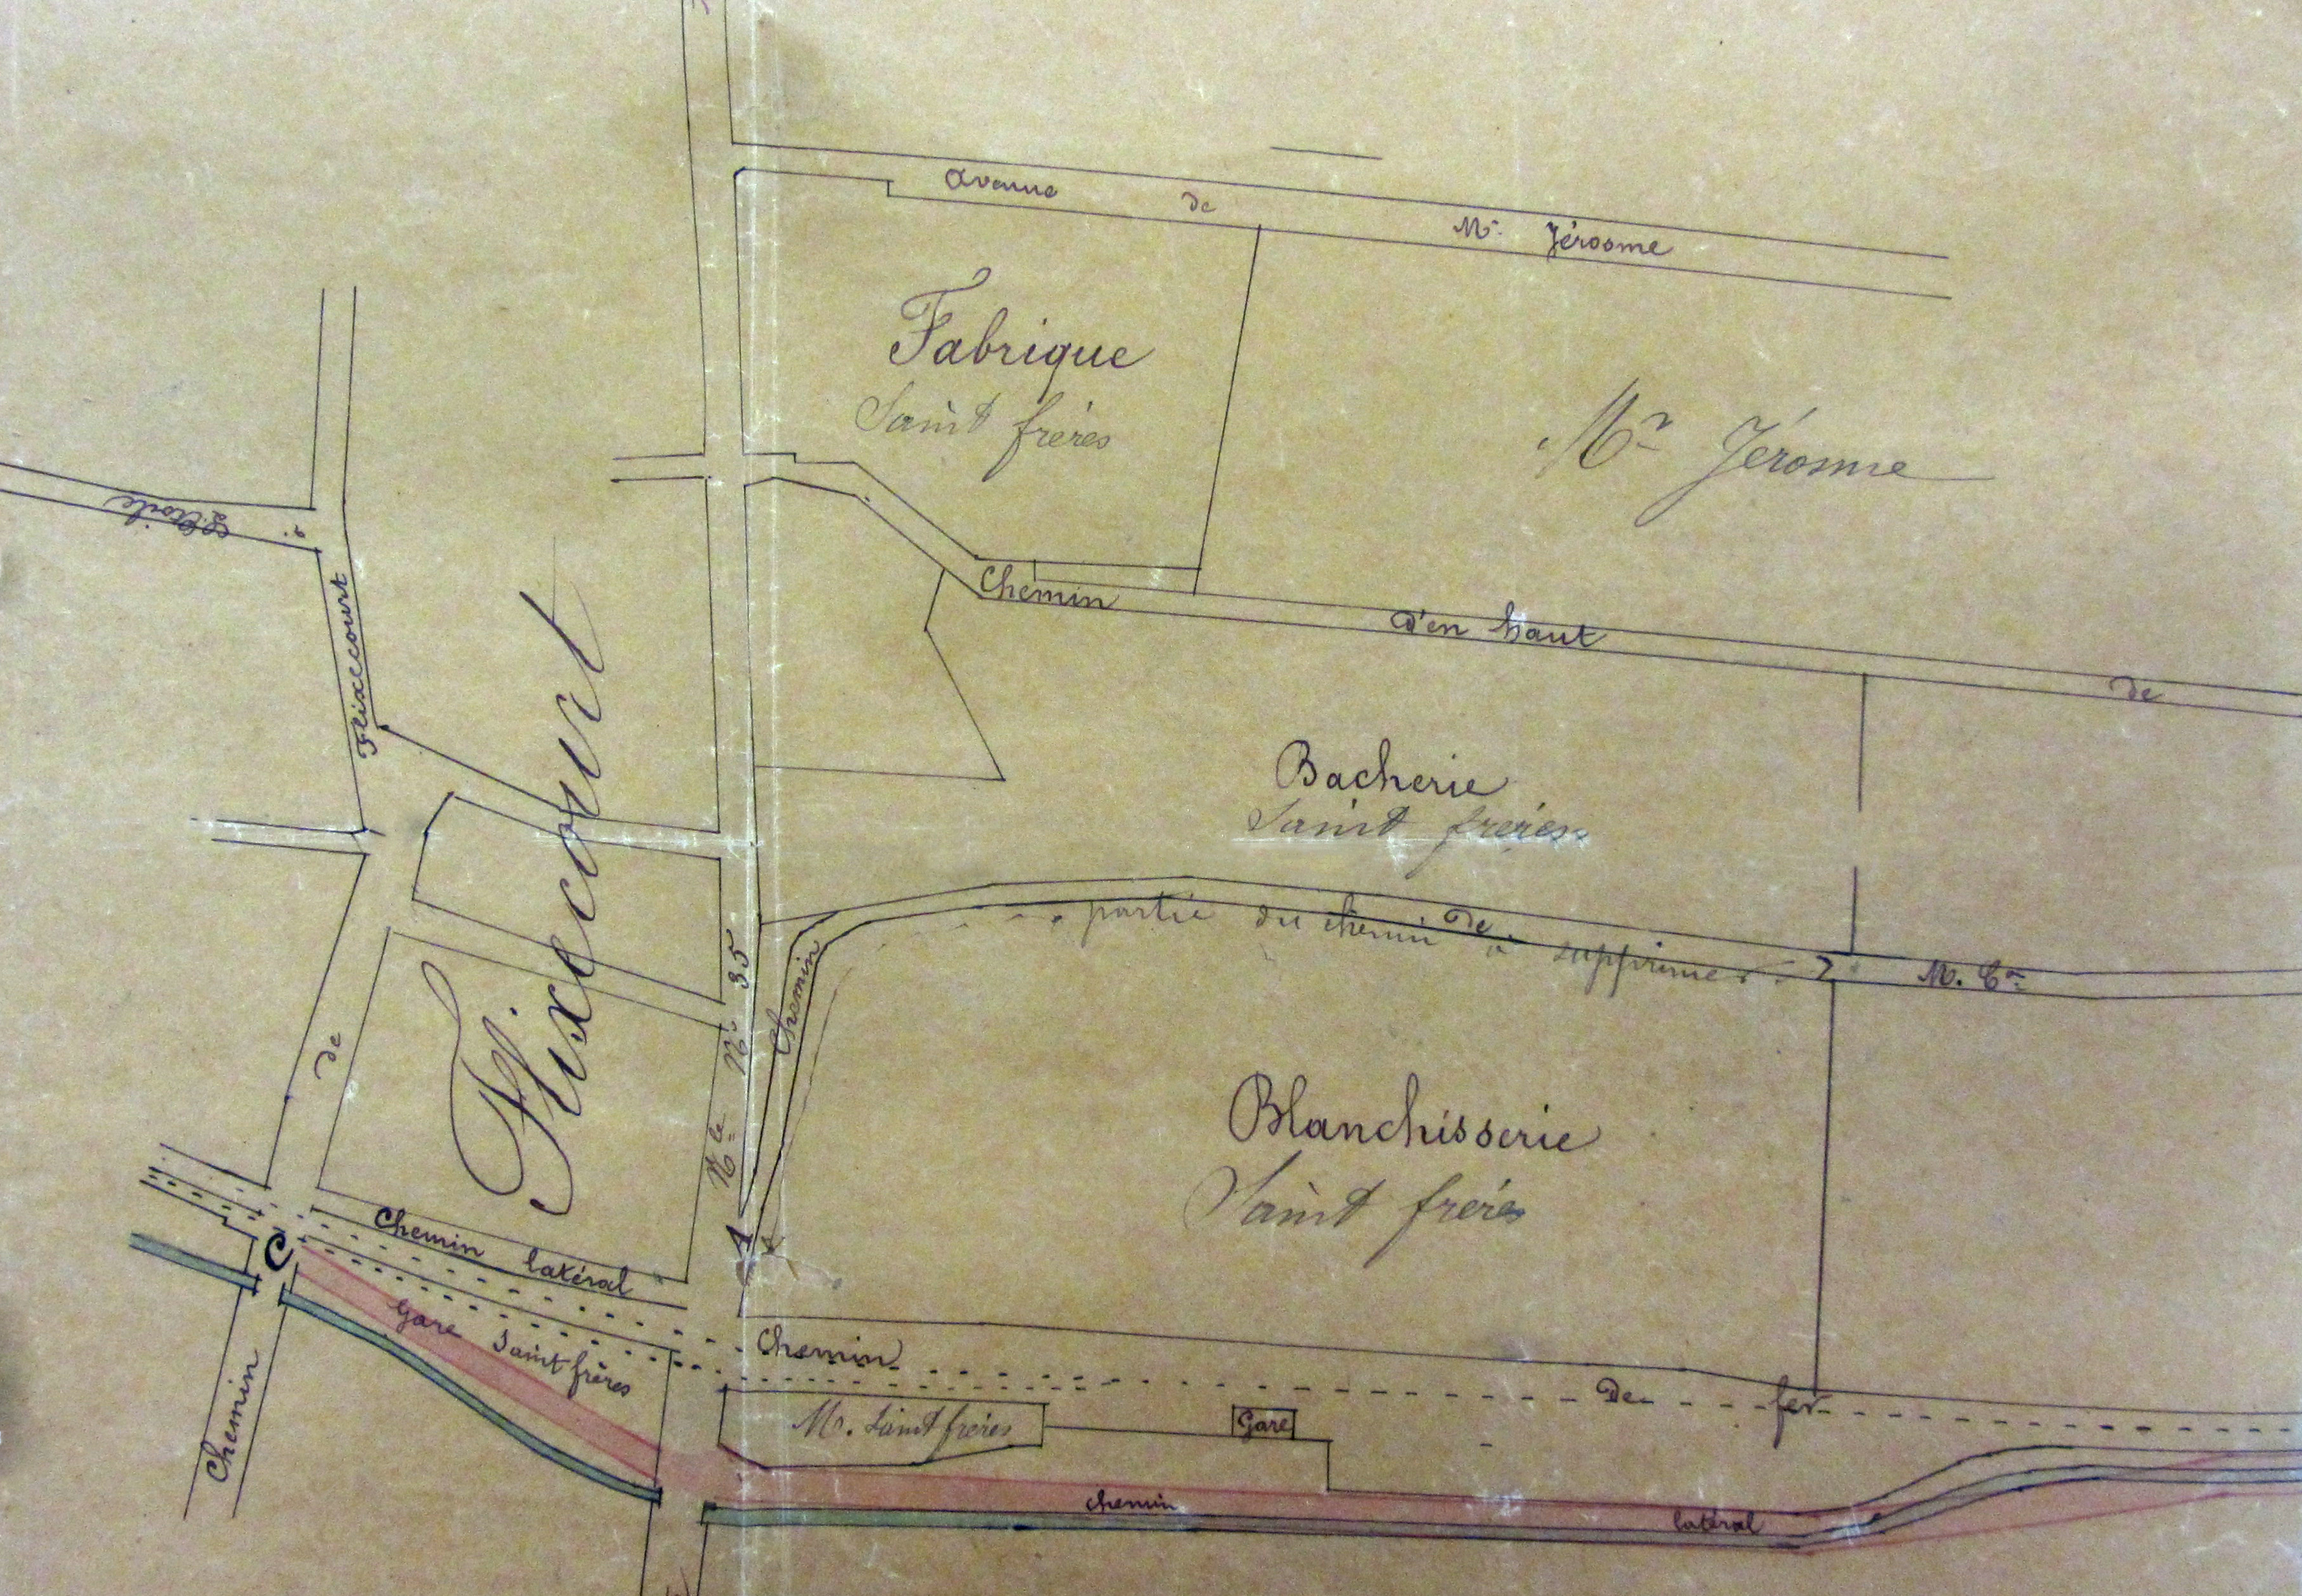 Avenue de Mr. Jérosme
Fabrique
Saint frères
Mr Jérosme
à L'Etoile
Flixecourt
Chemin d'en haut de
Flixecourt
Bacherie
Saint frères
partie du chemin à supprimer
Chemin de M. Cr.
Nle No. 35
de
Blanchisserie
Saint frères
A
C
Chemin latéral
Gare Saint frères
Chemin De fer
M. Saint frères
Gare
Chemin
chemin latéral